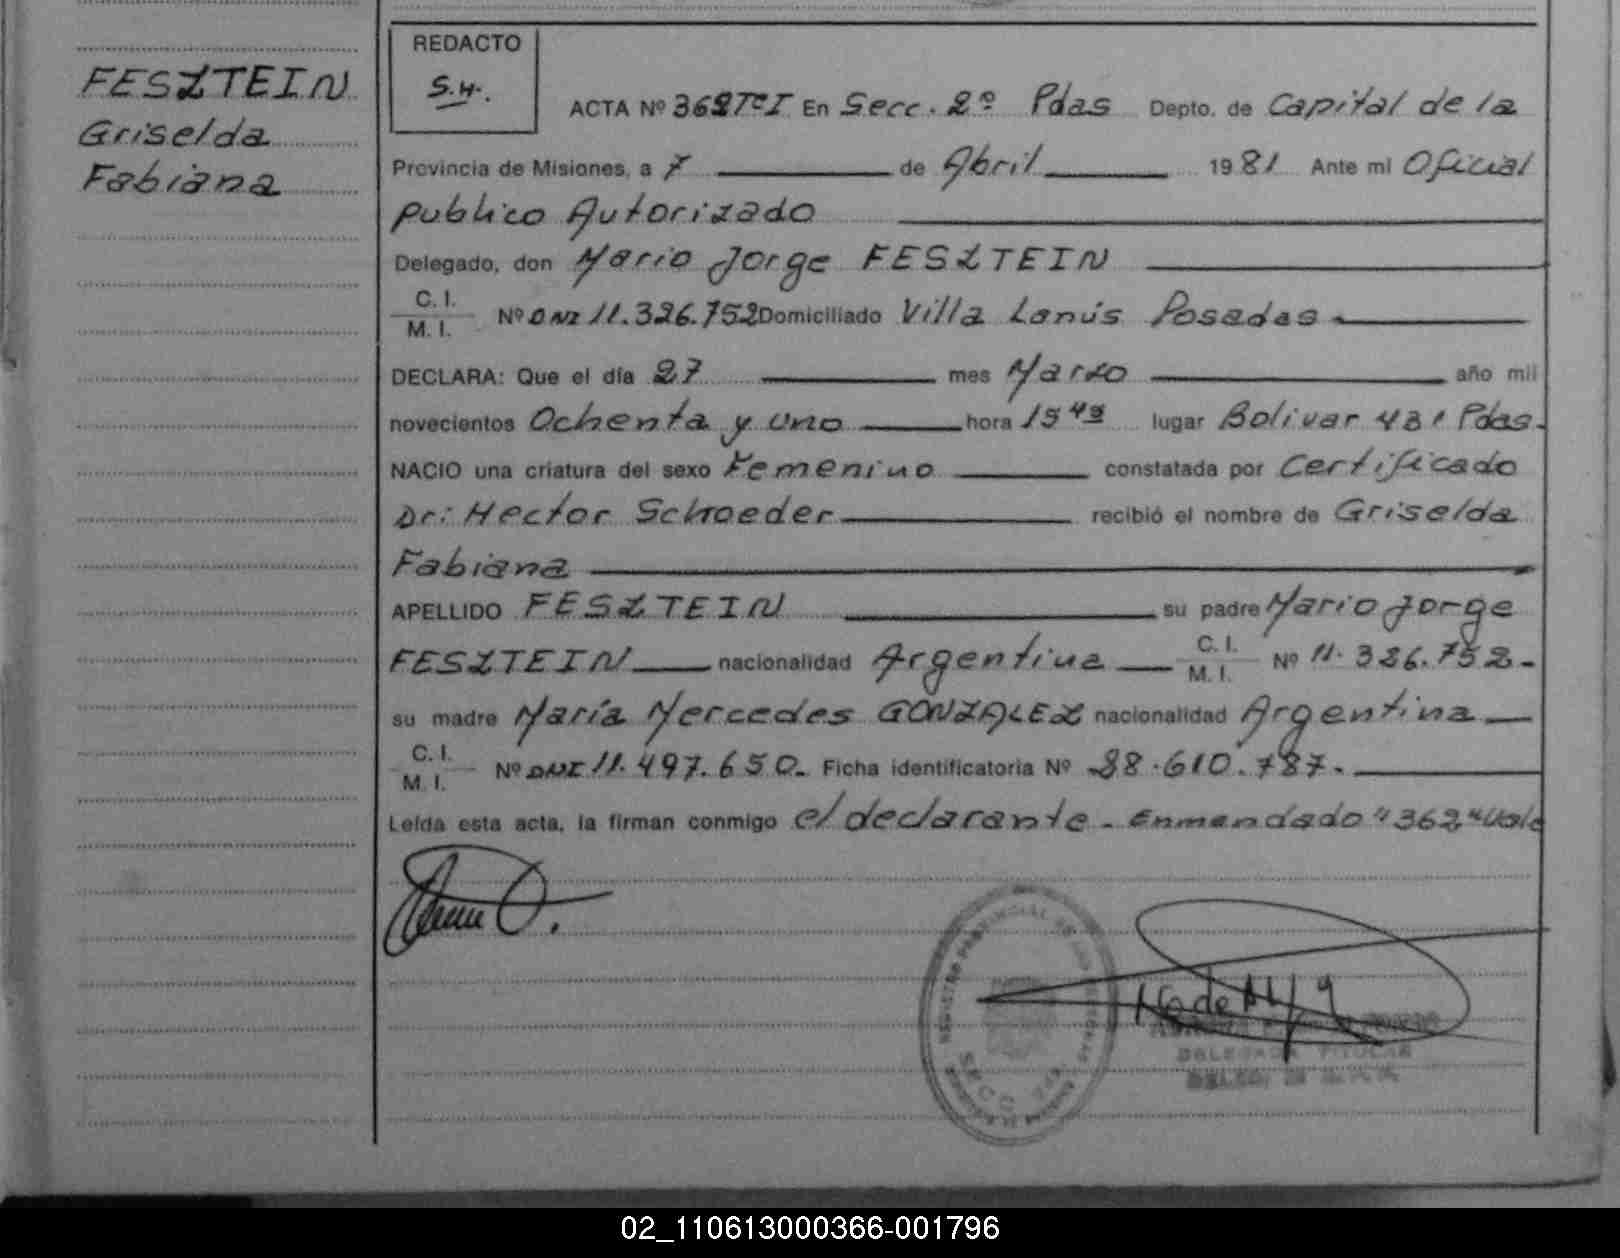 FESZTEIN
Griselda
Fabiana
REDACTO
S.H.
ACTA Nº 362 Tº I En Secc. 2º Pdas Depto. de Capital de la
Provincia de Misiones, a 7 de Abril 1981 Ante mi Oficial
Publico Autorizado
Delegado, don Mario Jorge FESZTEIN
C. I.
M. I. Nº DNI 11.326.752 Domiciliado Villa Lanús Posadas
DECLARA: Que el día 27 mes Marzo año mil
novecientos Ochenta y uno hora 15 49 lugar Bolivar 431 Pdas.
NACIO una criatura del sexo Femenino constatada por Certificado
Dr: Hector Schroeder recibió el nombre de Griselda
Fabiana
APELLIDO FESZTEIN su padre Mario Jorge
FESZTEIN nacionalidad Argentina C. I. M. I. Nº 11.326.752-
su madre María Mercedes GONZALEZ nacionalidad Argentina
C. I.
M. I. Nº DNI 11.497.650. Ficha identificatoria Nº 28.610.787.
Leída esta acta, la firman conmigo el declarante. Enmendado "362" Vale
SECC 2da
DELEGADA TITULAR
02_110613000366-001796